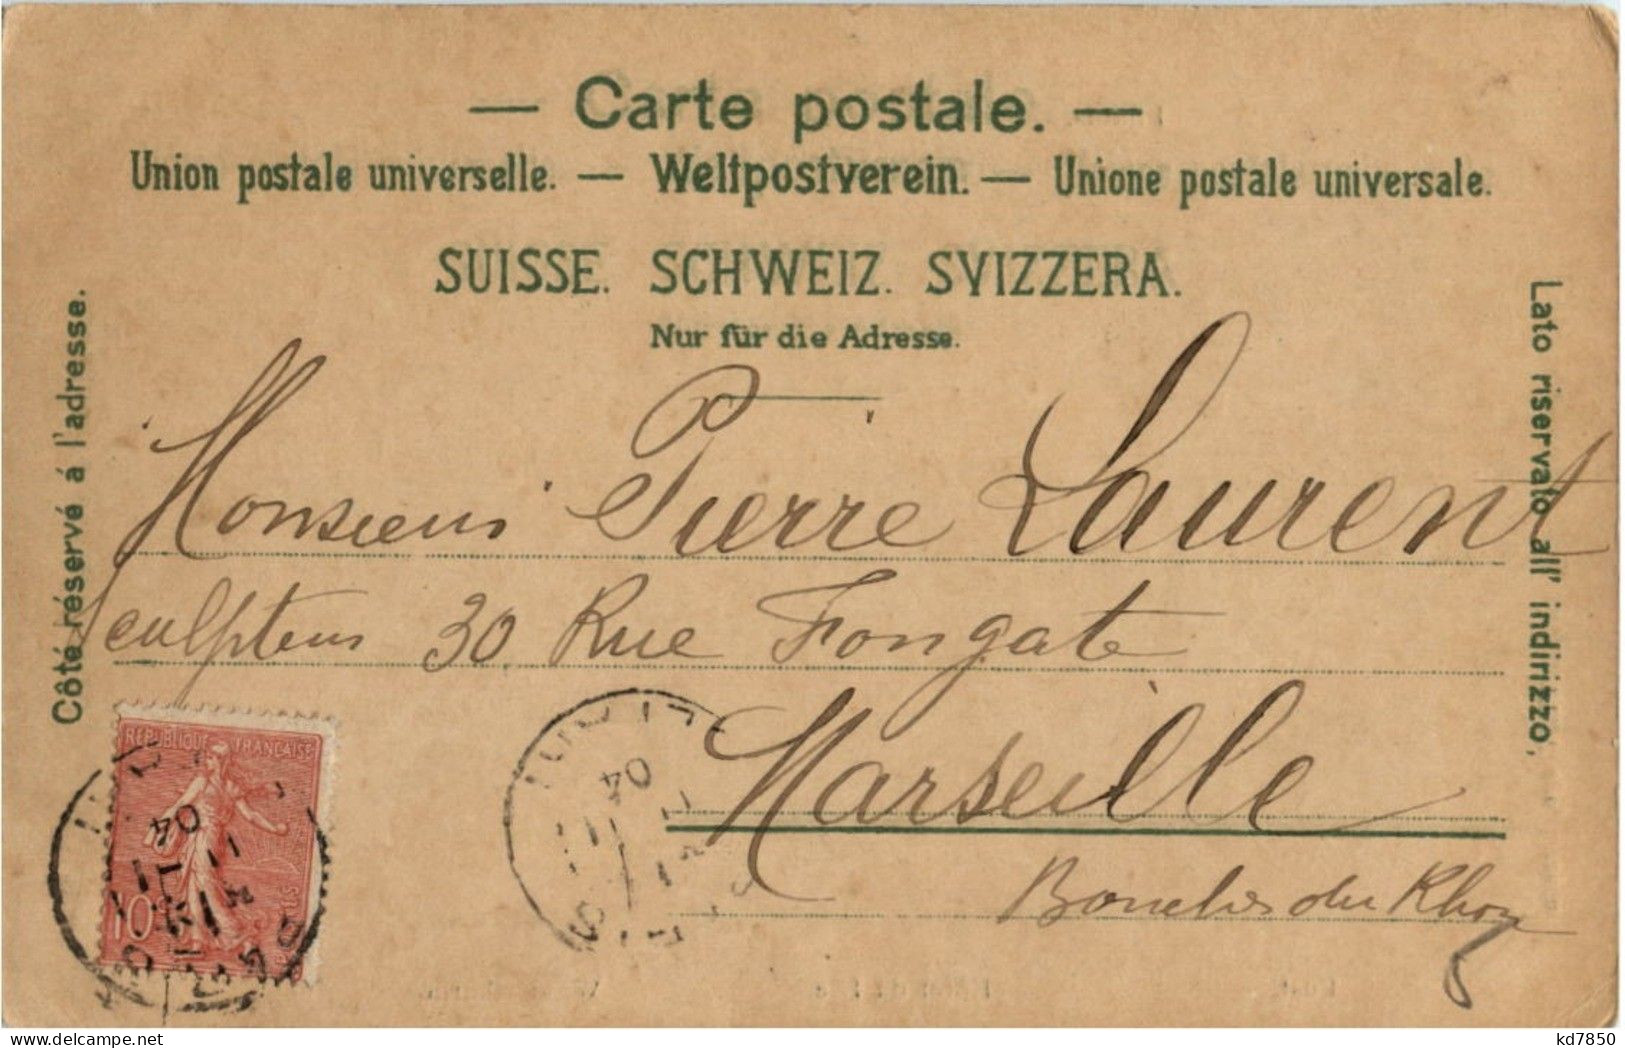 — Carte postale. —
Union postale universelle. — Weltpostverein. — Unione postale universale.
SUISSE. SCHWEIZ. SVIZZERA.
Nur für die Adresse.
Côté réservé á l'adresse.
Lato riservato all' indirizzo.
Monsieur Pierre Laurent
Sculpteur 30 Rue Fongate
Marseille
Bouches du Rhone
REPUBLIQUE FRANÇAISE
10
04
04
www.delcampe.net
kd7850